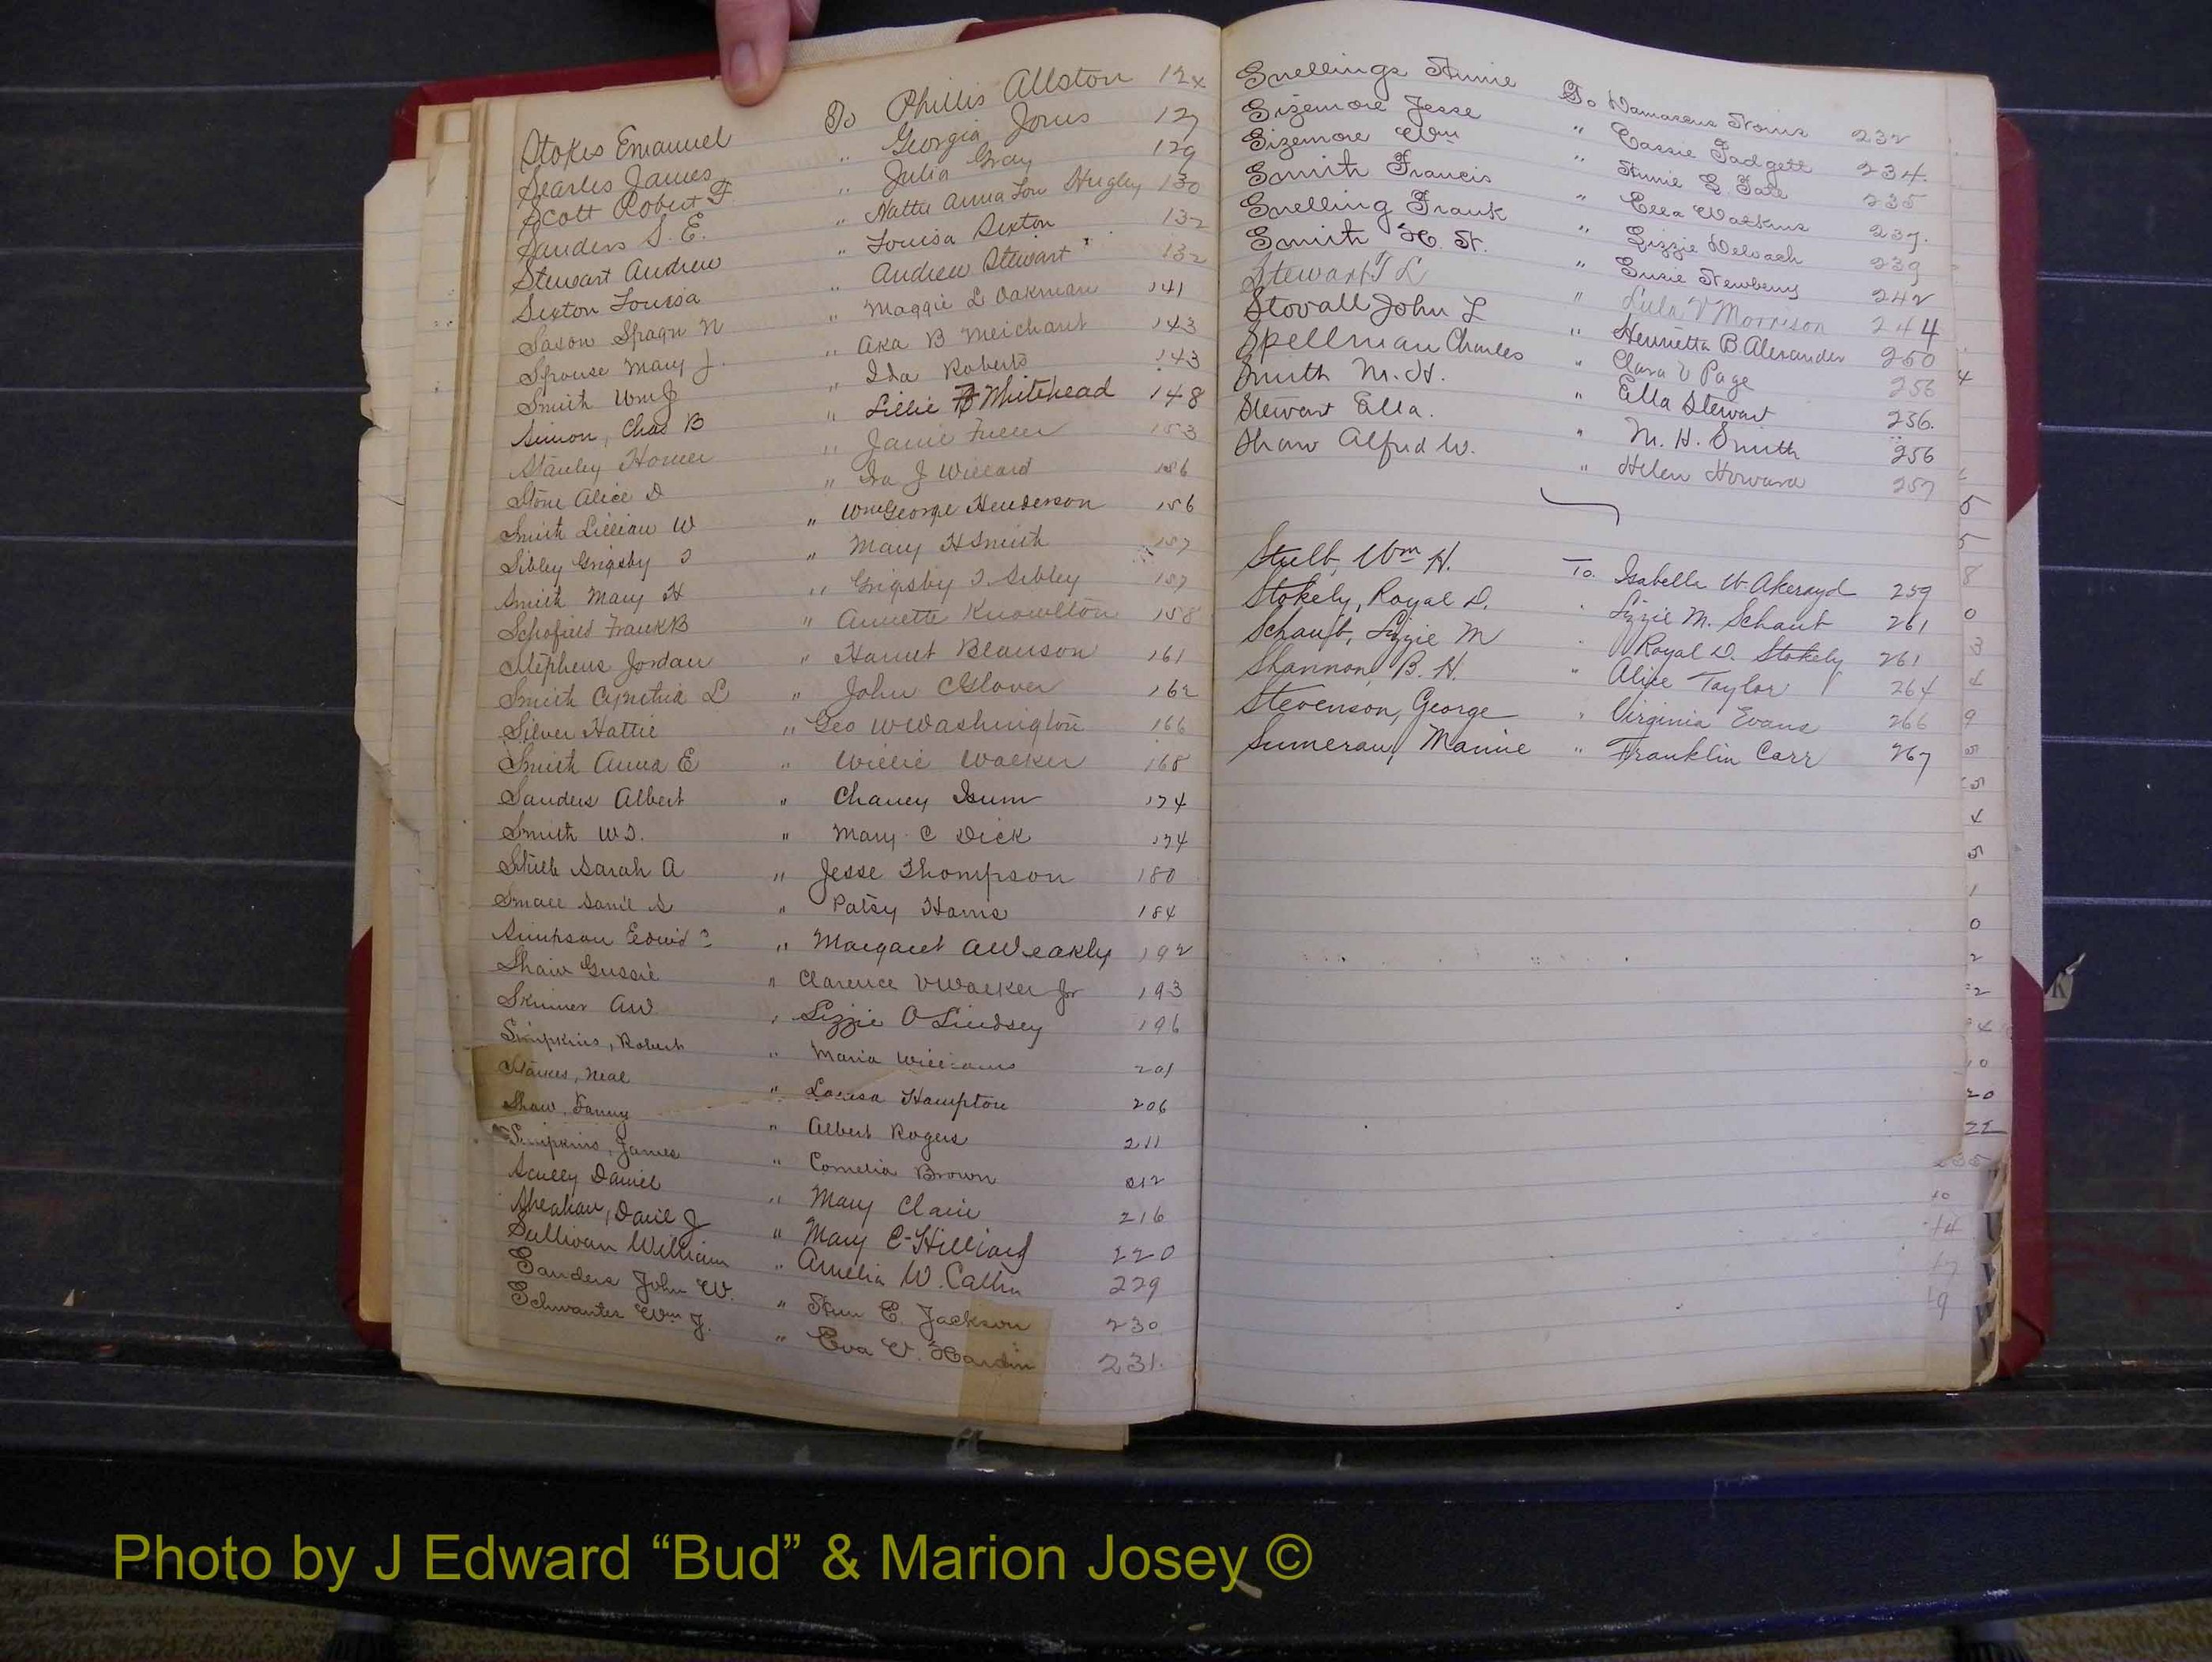 Stokes Emanuel To Phillis Allston 124
Searles James " Georgia Jones 127
Scott Robert F. " Julia Gray 129
Sanders S. E. " Hattie Anna Lou Hugley 130
Stewart Andrew " Louisa Sexton 132
Sexton Louisa " Andrew Stewart 132
Saxon Spagn N " Maggie L Oakman 141
Sprouse Mary J. " Aka B Meichant 143
Smith Wm J " Ida Roberts 143
Simon, Chas B " Lillie Whitehead 148
Stanley Homer " Janie Fuller 153
Stone Alice D " Ira J Willard 156
Smith Lillian W " Wm George Henderson 156
Sibley Grigsby T " Mary H Smith 157
Smith Mary H " Grigsby T Sibley 157
Schofield Frank B " Annette Knowlton 158
Stephens Jordan " Harriet Branson 161
Smith Cynthia L " John C Glover 162
Silver Hattie " Geo W Washington 166
Smith Anna E " Willie Walker 168
Sanders Albert " Chaney Isum 174
Smith W T. " Mary C Dick 174
Stulb Sarah A " Jesse Thompson 180
Small Daniel S " Patsy Harris 184
Simpson Edwin " Margaret A Weakly 192
Shaw Gussie " Clarence V Walker Jr 193
Skinner A W " Lizzie O Lindsey 196
Simpkins, Robert " Maria Williams 201
Starkes, Neal " Louisa Hampton 206
Shaw, Fanny " Albert Rogers 211
Simpkins, James " Cornelia Brown 212
Scully Daniel " Mary Clair 216
Sheahan, Daniel J " Mary E Hilliard 220
Sullivan William " Amelia W. Catlin 229
Sanders John W. " E. Jackson 230
Schwanter Wm J. " Eva V. Hardin 231.
Snellings Annie To Damascus Norris 232
Sizemore Jesse " Cassie Padgett 234.
Sizemore Wm " Annie E. Tate 235
Smith Francis " Ella Watkins 237.
Snelling Frank " Lizzie Deloach 239
Smith H. St. " Susie Newberry 242
Stewart T L " Lula V Morrison 244
Stovall John L " Henrietta B. Alexander 250
Spellman Charles " Clara V Page 256
Smith M. H. " Ella Stewart 256.
Stewart Ella. " M. H. Smith 256
Shaw Alfred W. " Helen Howard 257
Stulb, Wm H. To. Isabella W. Akeroyd 259
Stokely, Royal D. " Lizzie M. Schaub 261
Schaub, Lizzie M " Royal D. Stokely 261
Shannon, B. H. " Alice Taylor 264
Stevenson, George " Virginia Evans 266
Sumerau, Mamie " Franklin Carr 267
Photo by J Edward “Bud” & Marion Josey ©